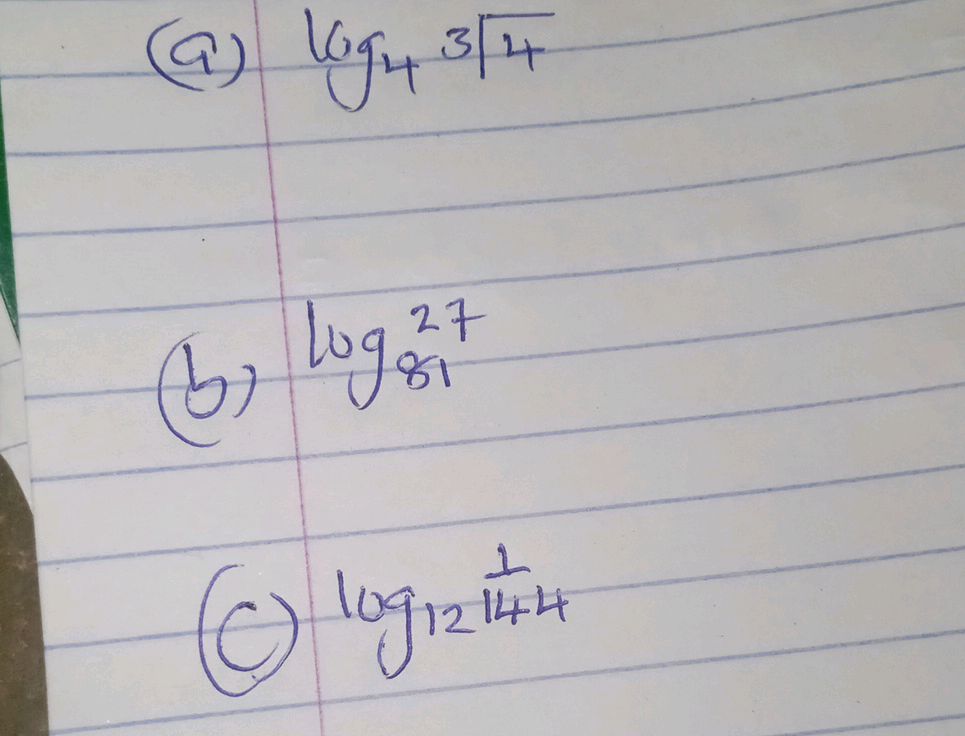 (a) log₄ ³√4
(b) log₈₁ 27
(c) log₁₂ 1/144